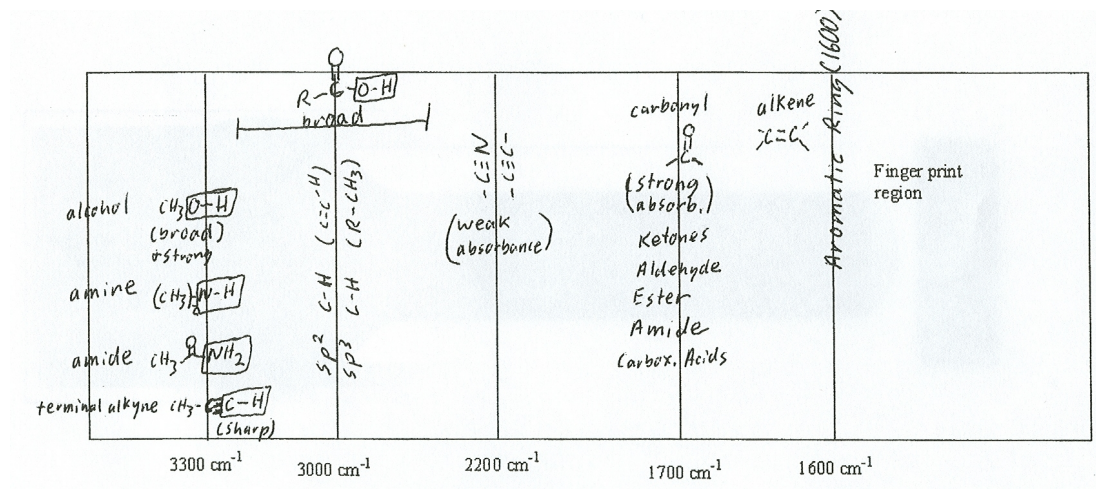 R-C-O-H
O
broad
alcohol CH3 O-H
(broad)
+strong
amine (CH3)2 N-H
amide CH3 O NH2
terminal alkyne CH3-C≡C-H
(sharp)
sp2 C-H (C=C-H)
sp3 C-H (R-CH3)
-C≡N
-C≡C-
(weak
absorbance)
carbonyl
O
C
(strong
absorb.)
Ketones
Aldehyde
Ester
Amide
Carbox. Acids
alkene
C=C
Aromatic Ring (1600)
Finger print
region
3300 cm-1
3000 cm-1
2200 cm-1
1700 cm-1
1600 cm-1